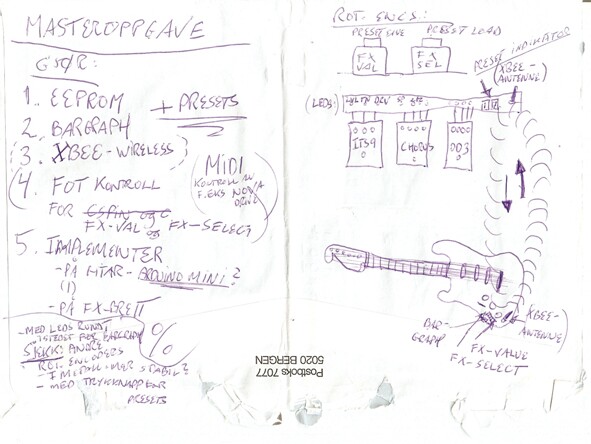 MASTEROPPGAVE
GJØR:
1. EEPROM + PRESETS
2. BARGRAPH
3. XBEE-WIRELESS
4. FOT KONTROLL
FOR
FX-VAL og FX-SELECT
(MIDI
KONTROLL AV
F.EKS NOVA
DRIVE)
5. IMPLEMENTER
- PÅ GITAR - ARDUINO MINI?
(1)
- PÅ FX-BRETT
- MED LEDS RUNDT
ISTEDET FOR BARGRAPH
SJEKK: ANDRE
ROT. ENCODERS
I METALL - MER STABIL?
- MED TRYKKNAPP FOR
PRESETS
ROT. ENCS.:
PRESET SAVE
PRESET LOAD
FX
VAL
FX
SEL
PRESET INDIKATOR
(XBEE-
ANTENNE)
(LEDS)
ITS9
CHORUS
OD3
BAR-
GRAPH
FX-VALUE
FX-SELECT
(XBEE-
ANTENNE)
Postboks 7077
5020 BERGEN